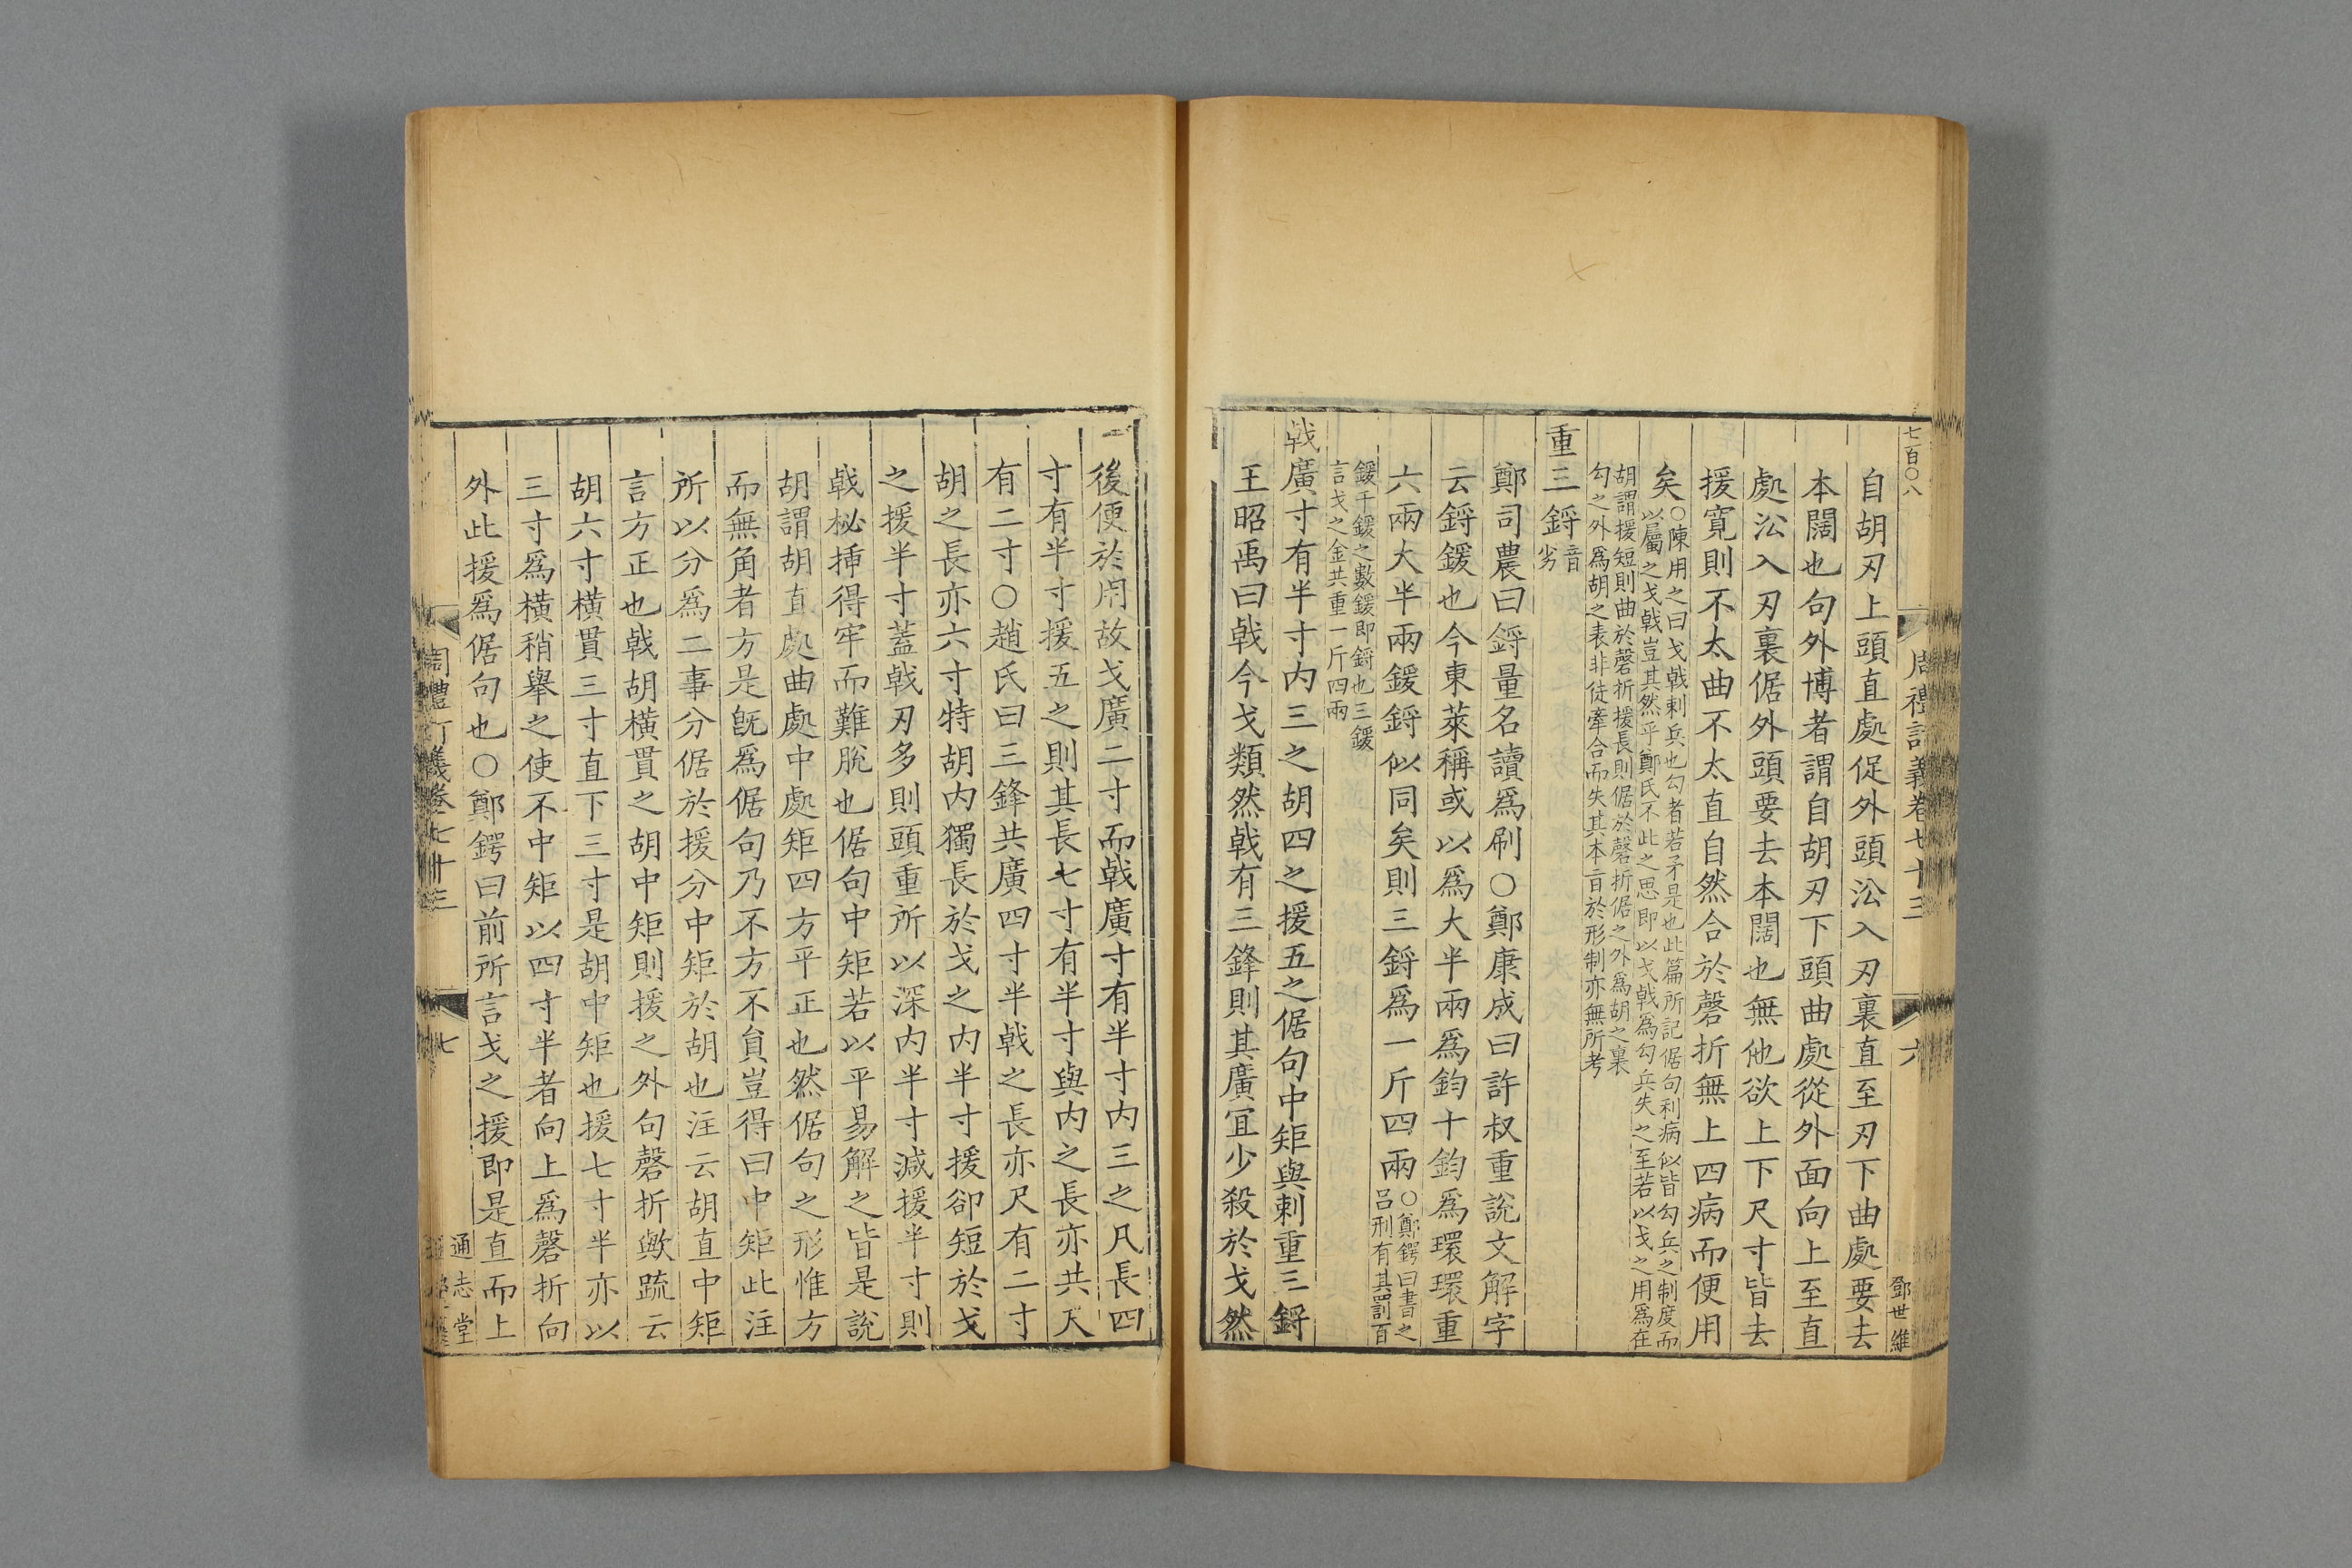 七百〇八
周禮訂義卷七十三
六
鄧世維
自胡刃上頭直處促外頭㳂入刃裏直至刃下曲處要去
本闊也句外博者謂自胡刃下頭曲處從外面向上至直
處㳂入刃裏倨外頭要去本闊也無他欲上下尺寸皆去
援寬則不太曲不太直自然合於磬折無上四病而便用
矣
〇陳用之曰戈戟刺兵也勾者若矛是也此篇所記倨句利病似皆勾兵之制度而
以屬之戈戟豈其然乎鄭氏不此之思即以戈戟為勾兵失之至若以戈之用為在
胡謂援短則曲於磬折援長則倨於磬折倨之外為胡之裏
勾之外為胡之表非徒牽合而失其本㫖於形制亦無所考
重三鋝
音
劣
鄭司農曰鋝量名讀爲刷〇鄭康成曰許叔重說文解字
云鋝鍰也今東萊稱或以爲大半兩爲鈞十鈞爲環環重
六兩大半兩鍰鋝似同矣則三鋝爲一斤四兩
〇鄭鍔曰書之
吕刑有其罰百
鍰千鍰之數鍰即鋝也三鍰
言戈之金共重一斤四兩
戟廣寸有半寸内三之胡四之援五之倨句中矩與刺重三鋝
王昭禹曰戟今戈類然戟有三鋒則其廣冝少殺於戈然
後便於用故戈廣二寸而戟廣寸有半寸内三之凡長四
寸有半寸援五之則其長七寸有半寸與内之長亦共尺
有二寸〇趙氏曰三鋒共廣四寸半戟之長亦尺有二寸
胡之長亦六寸特胡内獨長於戈之内半寸援卻短於戈
之援半寸蓋戟刃多則頭重所以深内半寸減援半寸則
戟柲揷得牢而難脫也倨句中矩若以平易解之皆是說
胡謂胡直處曲處中處矩四方平正也然倨句之形惟方
而無角者方是旣爲倨句乃不方不負豈得曰中矩此注
所以分爲二事分倨於援分中矩於胡也注云胡直中矩
言方正也戟胡横貫之胡中矩則援之外句磬折歟䟽云
胡六寸横貫三寸直下三寸是胡中矩也援七寸半亦以
三寸爲横稍舉之使不中矩以四寸半者向上爲磬折向
外此援爲倨句也〇鄭鍔曰前所言戈之援即是直而上
周禮訂義卷七十三
七
通志堂